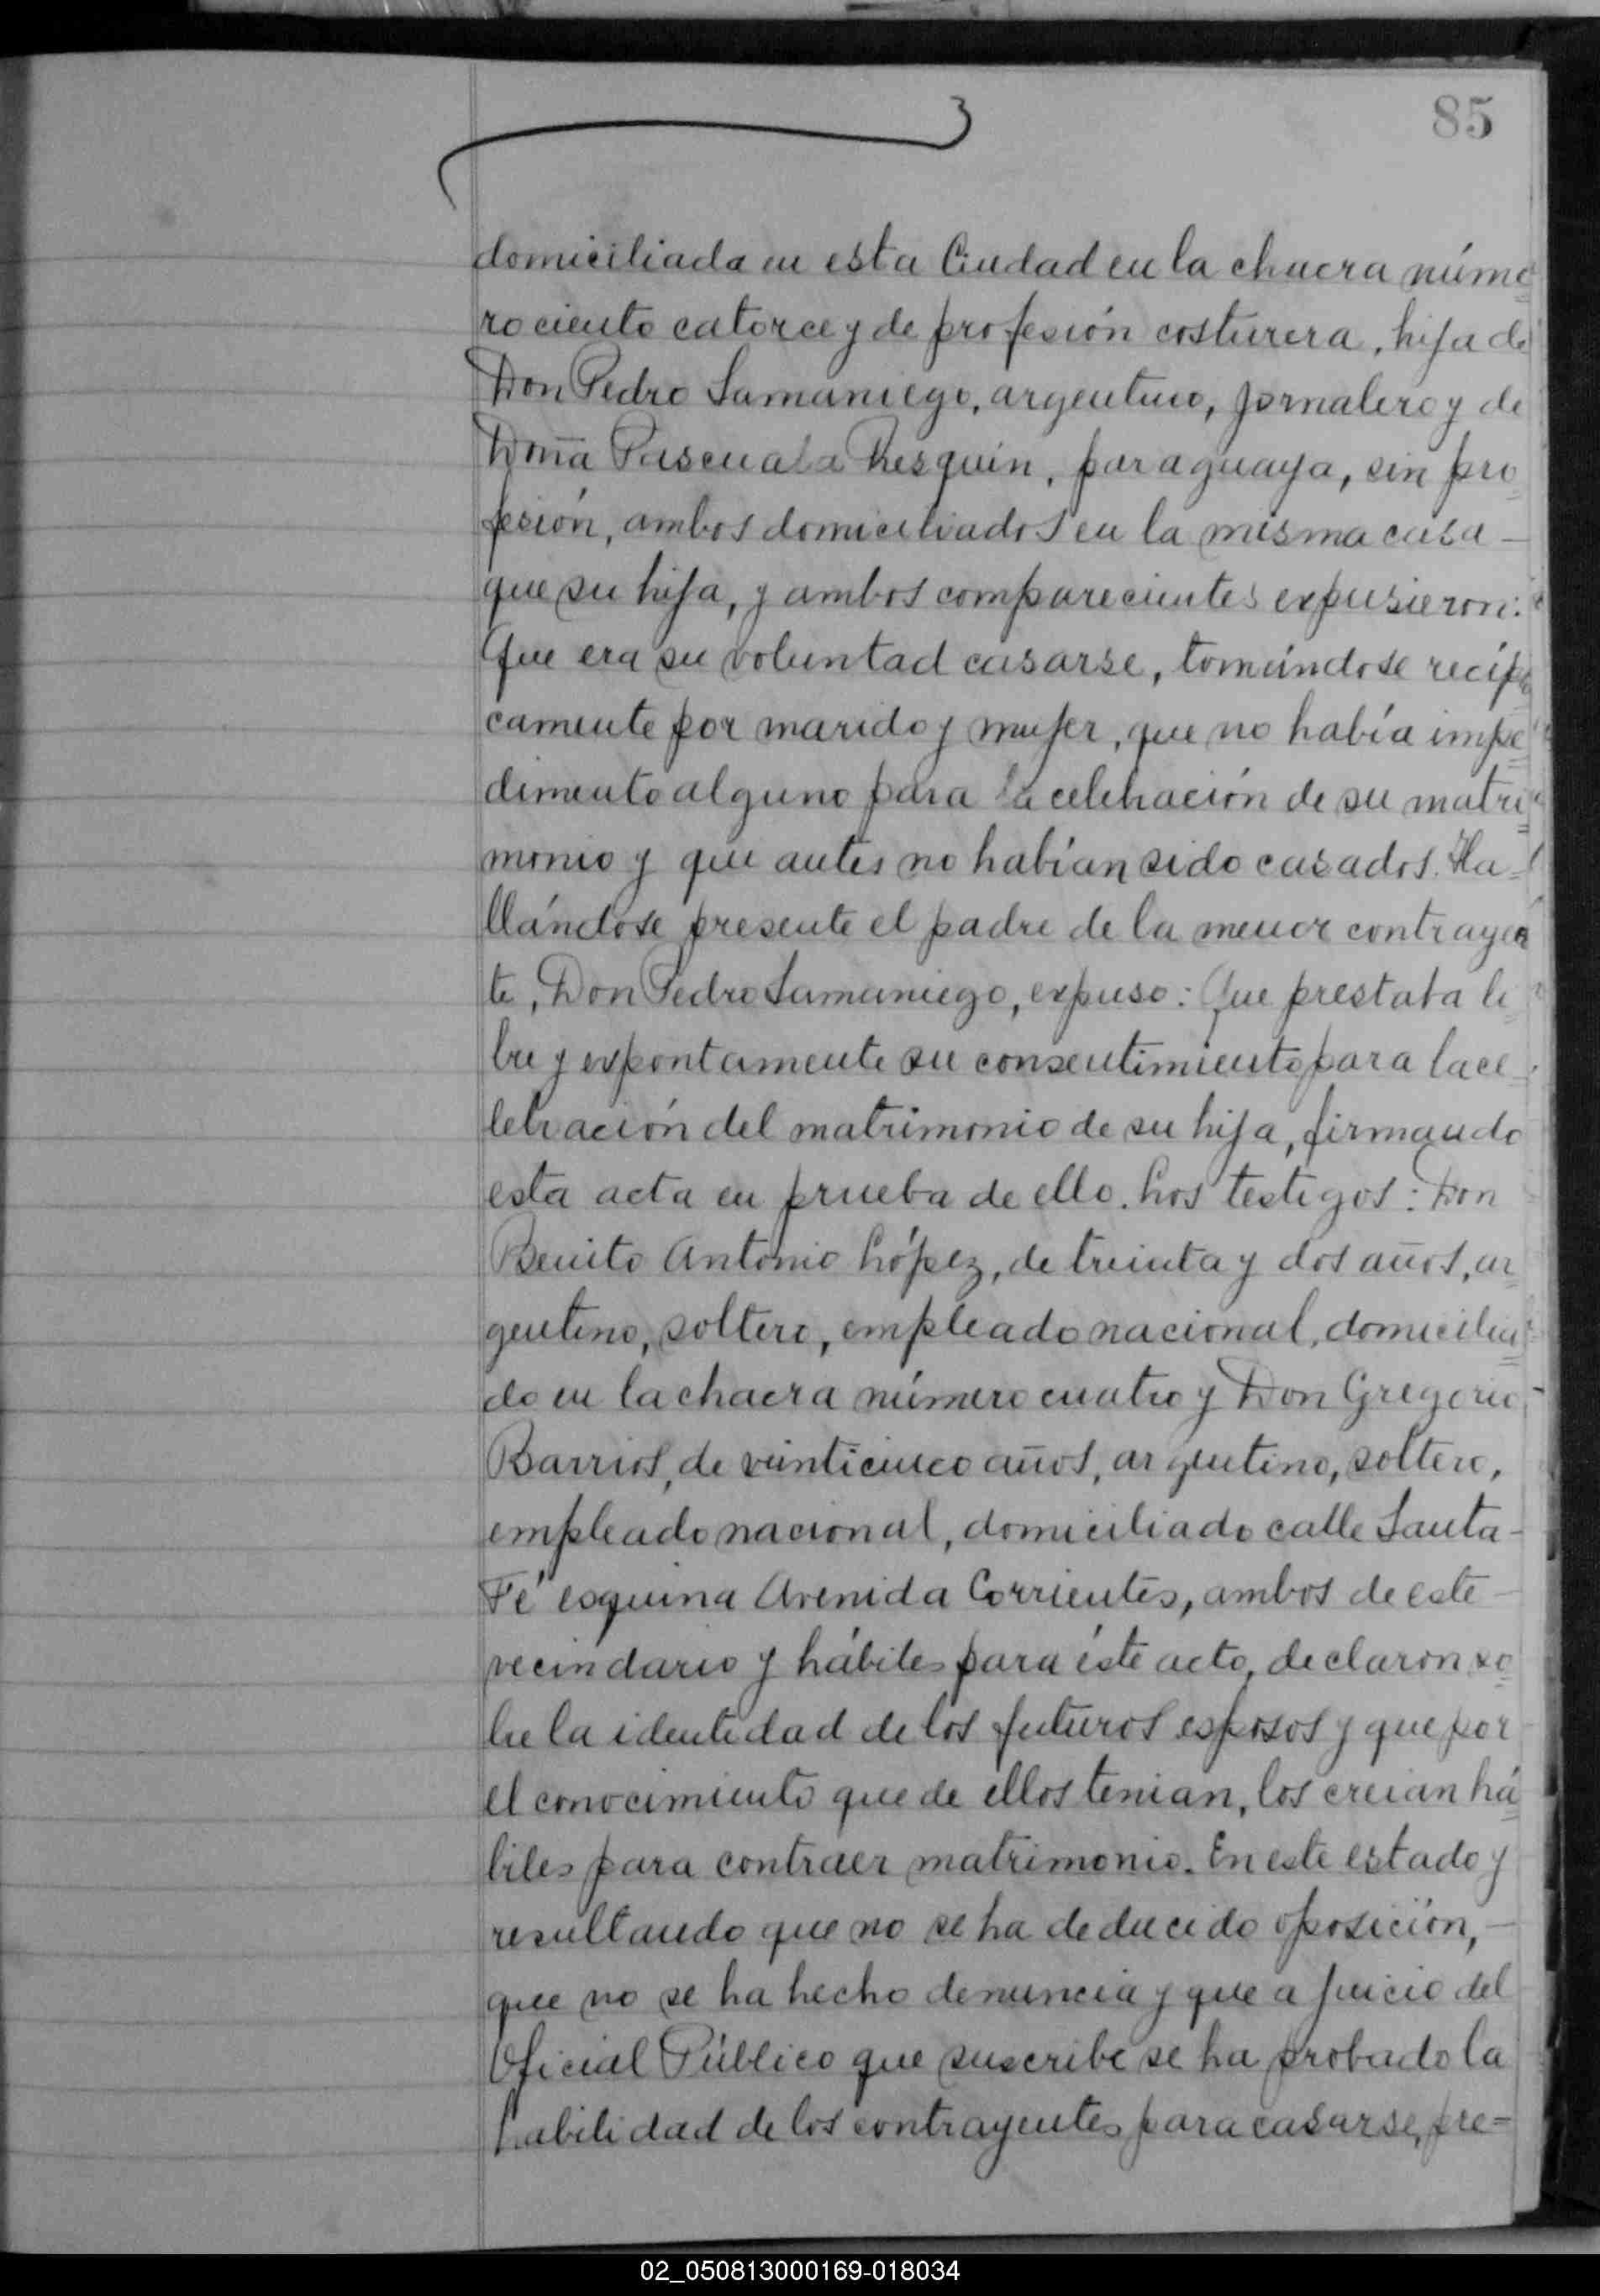 85
domiciliada en esta Ciudad en la chacra núme=
ro ciento catorce y de profesión costurera, hija de
Don Pedro Samaniego, argentino, jornalero y de
Doña Pascuala Resquin, paraguaya, sin pro=
fesión, ambos domiciliados en la misma casa—
que su hija, y ambos comparecientes expusieron:
Que era su voluntad casarse, tomándose recípro
camente por marido y mujer, que no había impe=
dimento alguno para la celebración de su matri=
monio y que antes no habían sido casados. Ha=
llándose presente el padre de la menor contrayen
te, Don Pedro Samaniego, expuso: Que prestaba li=
bre y expontamente su consentimiento para la ce=
lebración del matrimonio de su hija, firmando
esta acta en prueba de ello. Los testigos: Don
Benito Antonio López, de treinta y dos años, ar=
gentino, soltero, empleado nacional, domicilia=
do en la chacra número cuatro y Don Gregorio
Barrios, de veinticinco años, argentino, soltero,
empleado nacional, domiciliado calle Santa—
Fé esquina Avenida Corrientes, ambos de este—
vecindario y hábiles para éste acto, declaron so=
bre la identidad de los futuros esposos y que por
el conocimiento que de ellos tenian, los creian há=
biles para contraer matrimonio. En este estado y
resultando que no se ha deducido oposición,—
que no se ha hecho denuncia y que a juicio del
Oficial Público que suscribe se ha probado la
habilidad de los contrayentes para casarse, pre=
02_050813000169-018034